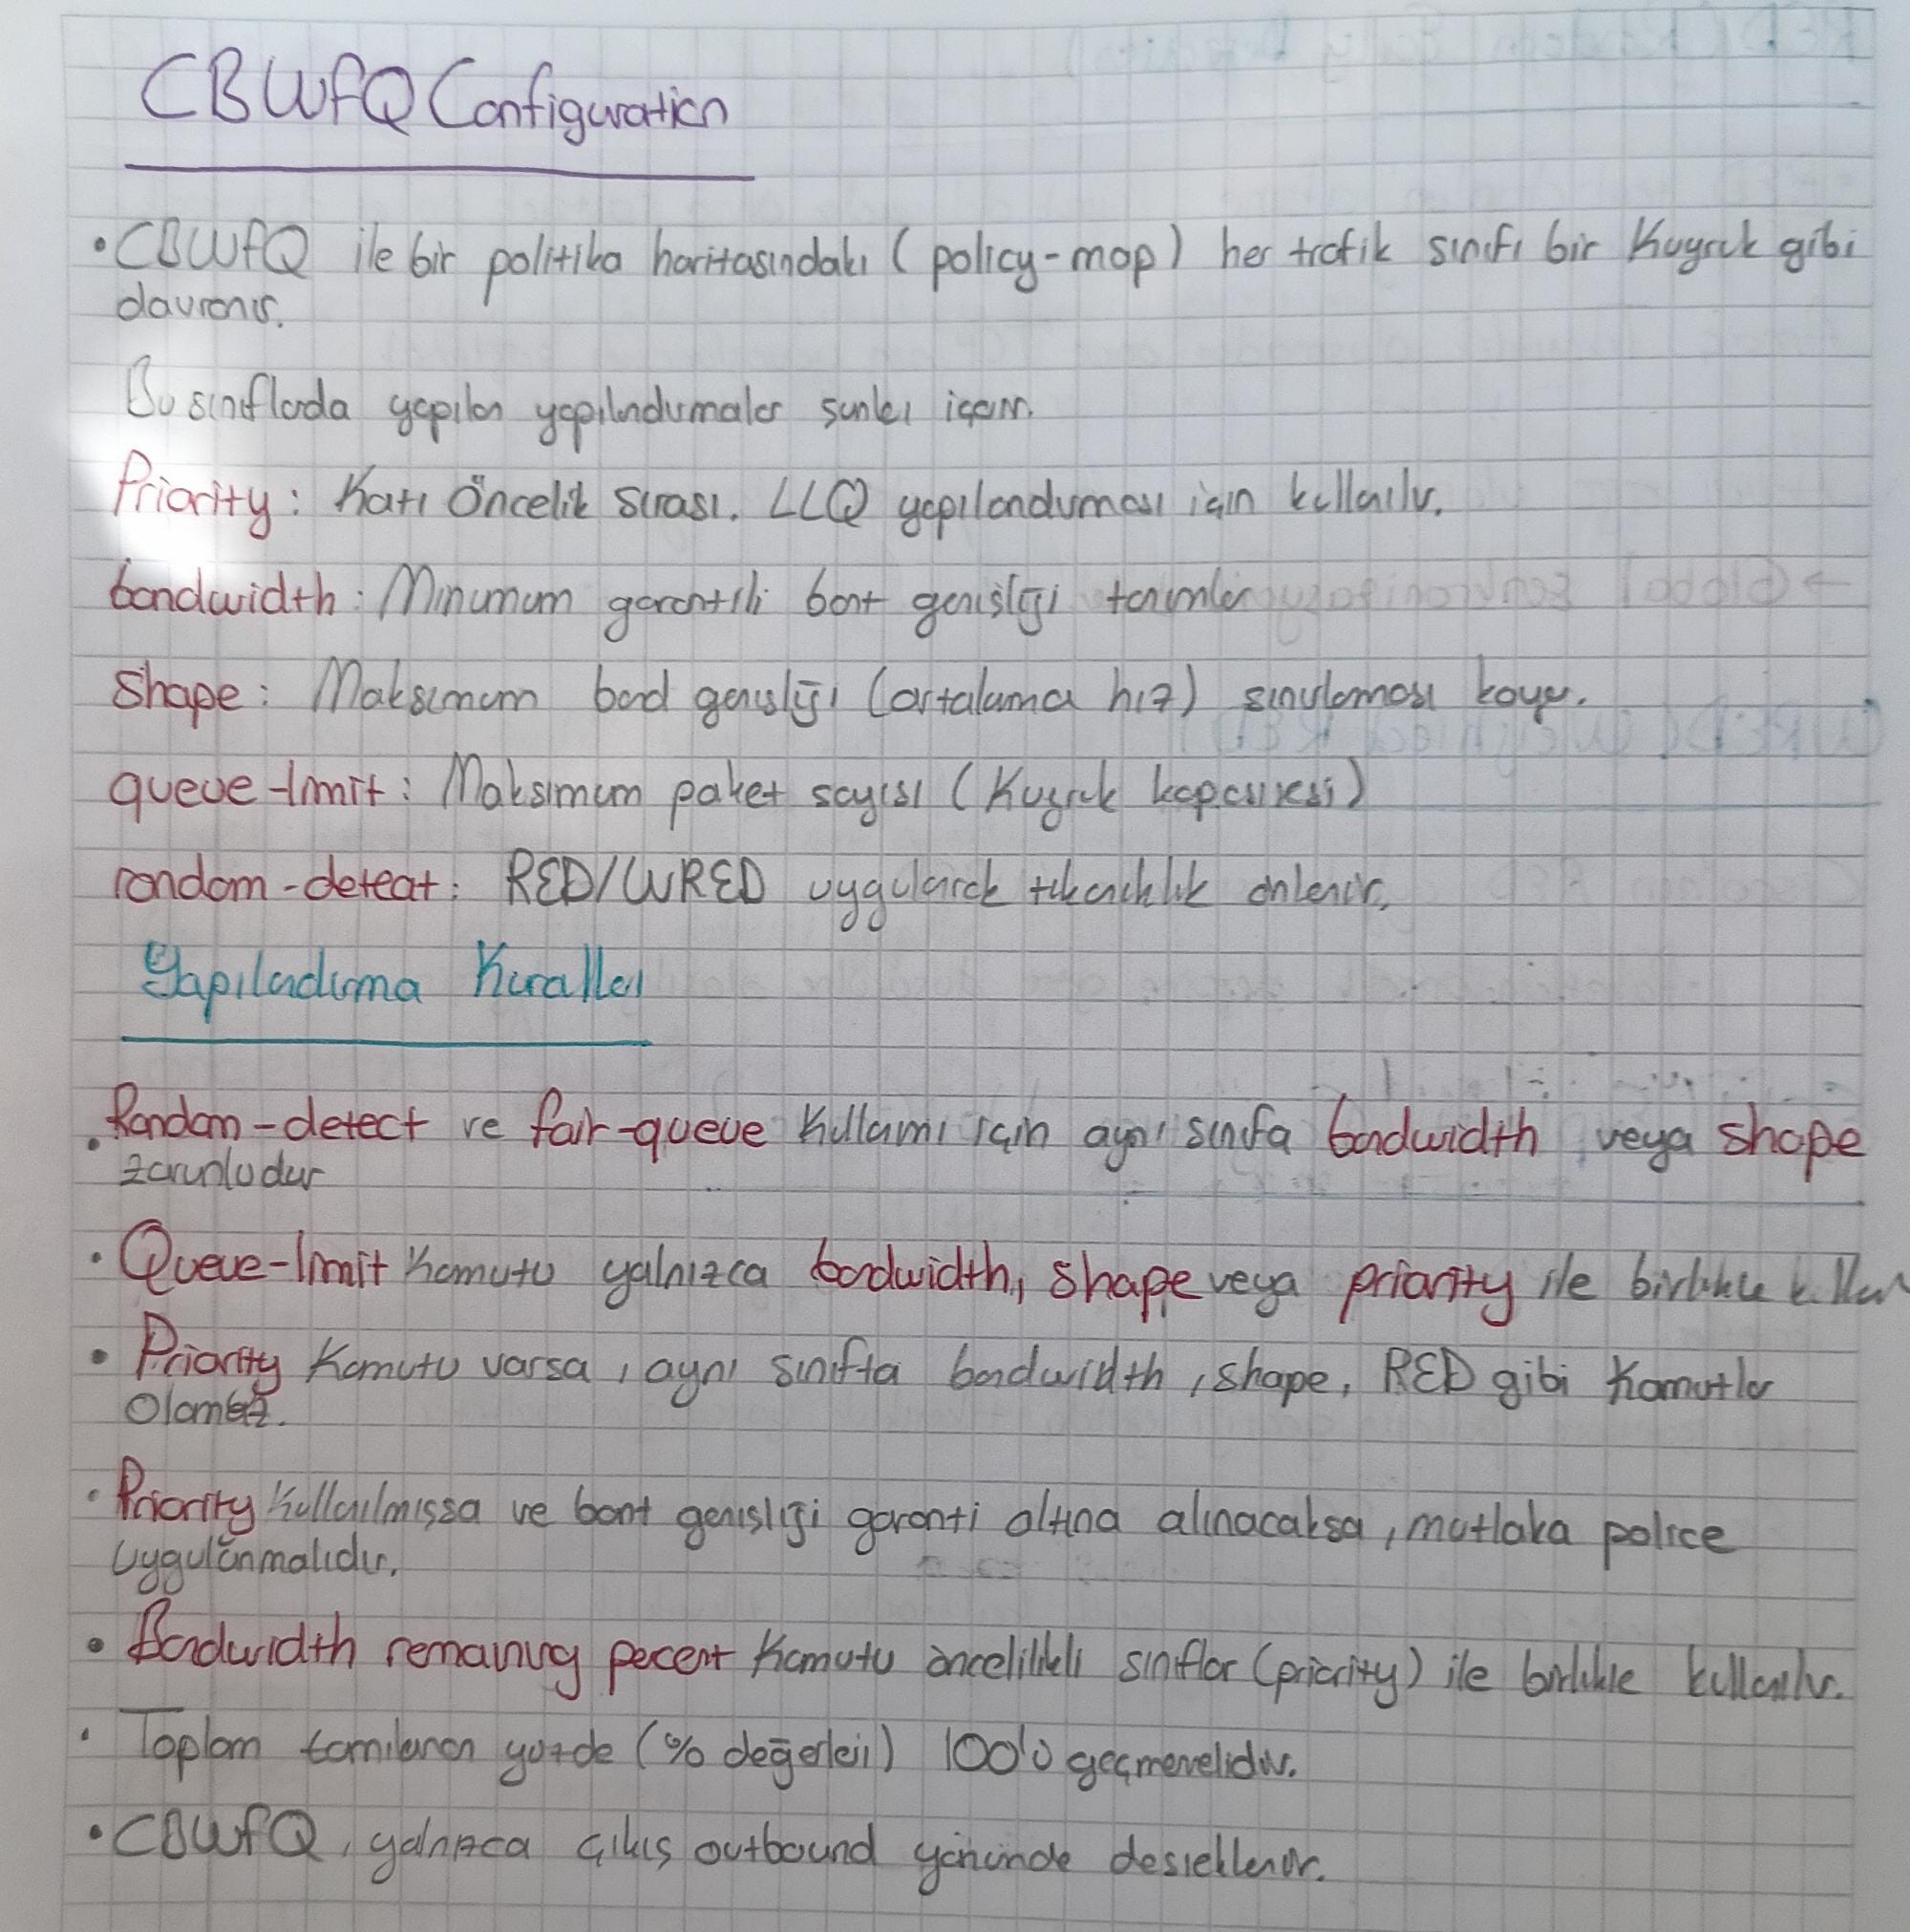 CBWFQ Configuration
• CBWFQ ile bir politika haritasındakı (policy-map) her trafik sınıfı bir Kuyruk gibi
davranır.
Bu sınıflarda yapılan yapılandırmalar şunları içerir.
Priority: Katı Öncelik Sırası. LLQ yapılandırması için kullanılır.
bandwidth: Minumum garantili bant genişliği tanımlar
Shape: Maksimum band genişliği (ortalama hız) sınırlaması koyar.
queue-limit: Maksimum paket sayısı (Kuyruk kapasitesi)
random-deteat: RED/WRED uygularak tıkanıklık önlenir.
Yapılandırma Kuralları
• Random-detect ve fair-queue Kullanımı için aynı sınıfa bandwidth veya shape
zorunludur
• Queue-limit Komutu yalnızca bandwidth, Shape veya priority ile birlikte
• Priority Komutu varsa, aynı sınıfta bandwidth, shape, RED gibi Komutlar
Olamaz.
• Priority Kullanılmışsa ve bant genişliği garanti altına alınacaksa, mutlaka police
Uygulanmalıdır.
• Bandwidth remaining pecent Komutu öncelikli sınıflar (priority) ile birlikte kullanılır.
• Toplam tanımlanan yüzde (% değerleri) 100'ü geçmemelidir.
• CBWFQ, yalnızca çıkış outbound yönünde desteklenir.